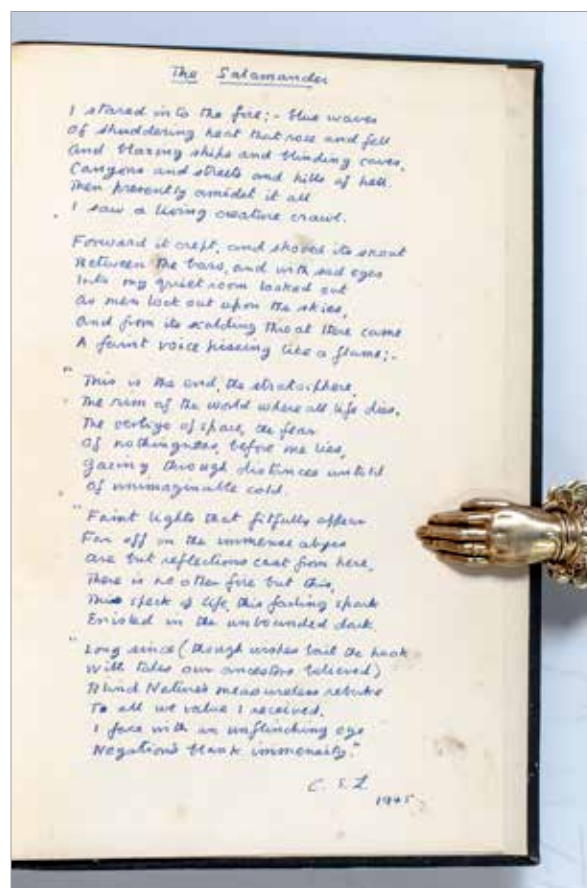 The Salamander
I stared into the fire; - blue waves
Of shuddering heat that rose and fell
And blazing ships and blinding caves,
Canyons and streets and hills of hell.
Then presently amidst it all
I saw a living creature crawl.
Forward it crept, and shoved its snout
Between the bars, and with sad eyes
Into my quiet room looked out
As men look out upon the skies,
And from its scalding throat there came
A faint voice hissing like a flame; -
"This is the end, the stratosphere,
The rim of the world where all life dies,
The vertigo of space, the fear
Of nothingness, before me lies,
Gazing through distances untold
Of unimaginable cold.
"Faint lights that fitfully appear
Far off in the immense abyss
Are but reflections cast from here,
There is no other fire but this,
This speck of life, this fading spark
Enisled in the unbounded dark.
"Long since (though wishes bait the hook
With tales our ancestors believed)
Blind Nature's measureless rebuke
To all we value I received.
I face with an unflinching eye
Negation's blank immensity."
C. S. L
1945